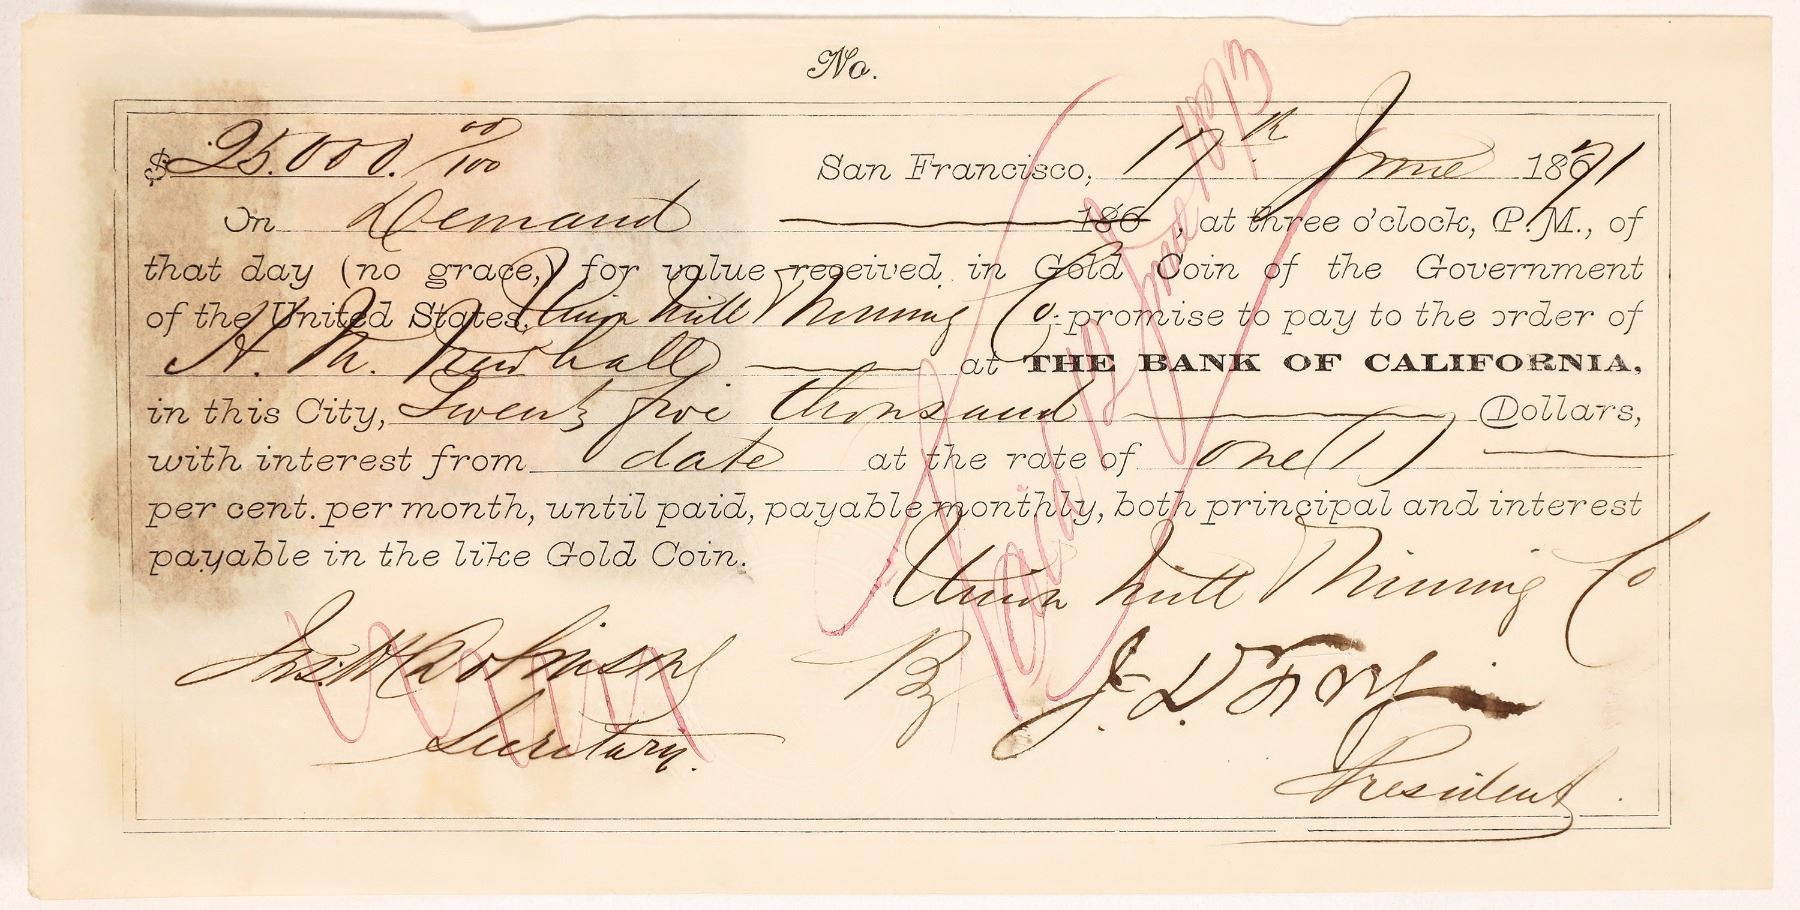 No.
$ 25.000. 00/100 San Francisco, 17th June 1871
On Demand 186 , at three o'clock, P.M., of
that day (no grace,) for value received, in Gold Coin of the Government
of the United States, Union Mill Mining Co. promise to pay to the order of
H. M. Newhall at THE BANK OF CALIFORNIA,
in this City, Twenty five thousand Dollars,
with interest from date at the rate of one (1)
per cent. per month, until paid, payable monthly, both principal and interest
payable in the like Gold Coin.
Union Mill Mining Co
By J. D. Fry
President
Robinson
Secretary.
Paid 12 June 1873